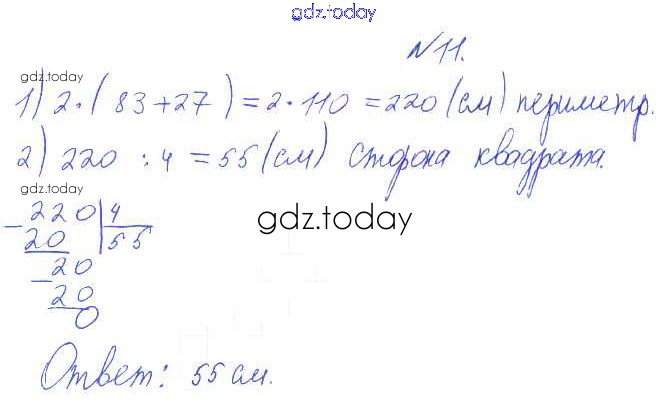 gdz.today
№11.
gdz.today
1) 2·(83+27)=2·110=220(см) периметр.
2) 220:4=55(см) сторона квадрата.
gdz.today
-220|4
20 |55
gdz.today
-20
20
0
Ответ: 55см.